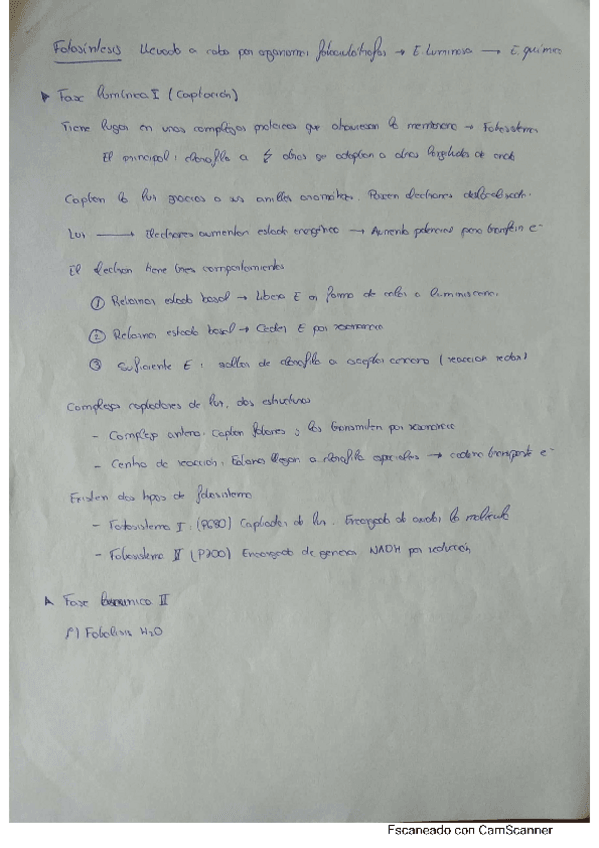 Fotosíntesis Llevado a cabo por organismos fotoautótrofos → E. luminosa → E. química
▸ Fase lumínica I (Captación)
Tiene lugar en unos complejos proteicos que atraviesan la membrana → Fotosistema
El principal: clorofila a y otros que adaptan a otras longitudes de onda
Captan la luz gracias a sus anillos aromáticos. Poseen electrones deslocalizado.
Luz → Electrones aumentan estado energético → Aumenta potencial para transferir e-
El electron tiene tres comportamientos
① Retornar estado basal → Libera E en forma de calor o luminiscencia.
② Retornar estado basal → Ceder E por resonancia
③ Suficiente E: saltar de clorofila a aceptor cercano (reaccion redox)
Complejos captadores de luz, dos estructuras
- Complejo antena. Captan fotones y los transmiten por resonancia
- Centro de reacción. Fotones llegan a clorofila especiales → cadena transporte e-
Existen dos tipos de fotosistema
- Fotosistema I (PG80) Captador de luz. Encargado de la molécula
- Fotosistema II (P700) Encargado de generar NADH por reducción
▸ Fase II
Fotolisis H2O
Escaneado con CamScanner